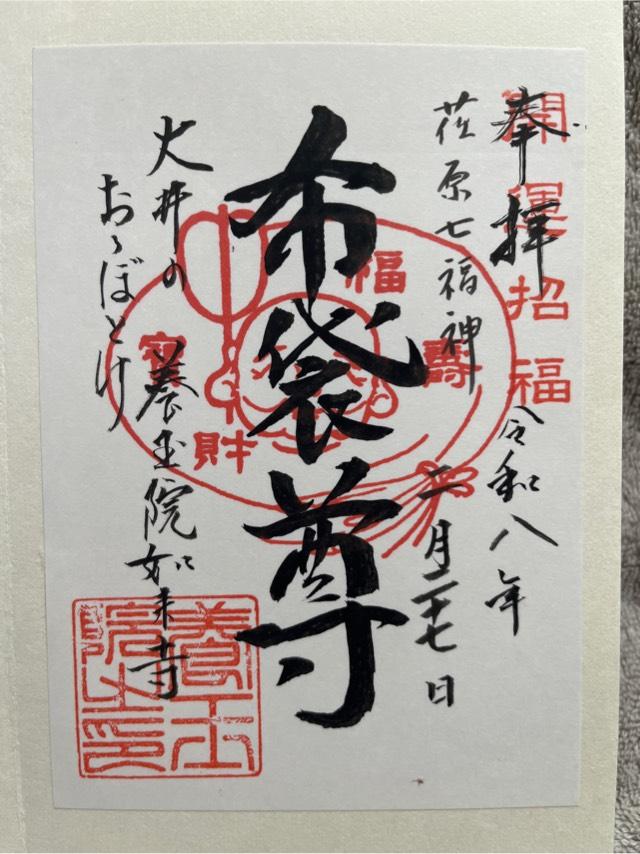 奉拝
開運招福
令和八年
二月二十七日
荏原七福神
布袋尊
福
壽
寶
財
大井の
おゝぼとけ
養玉院如来寺
養玉
院之印